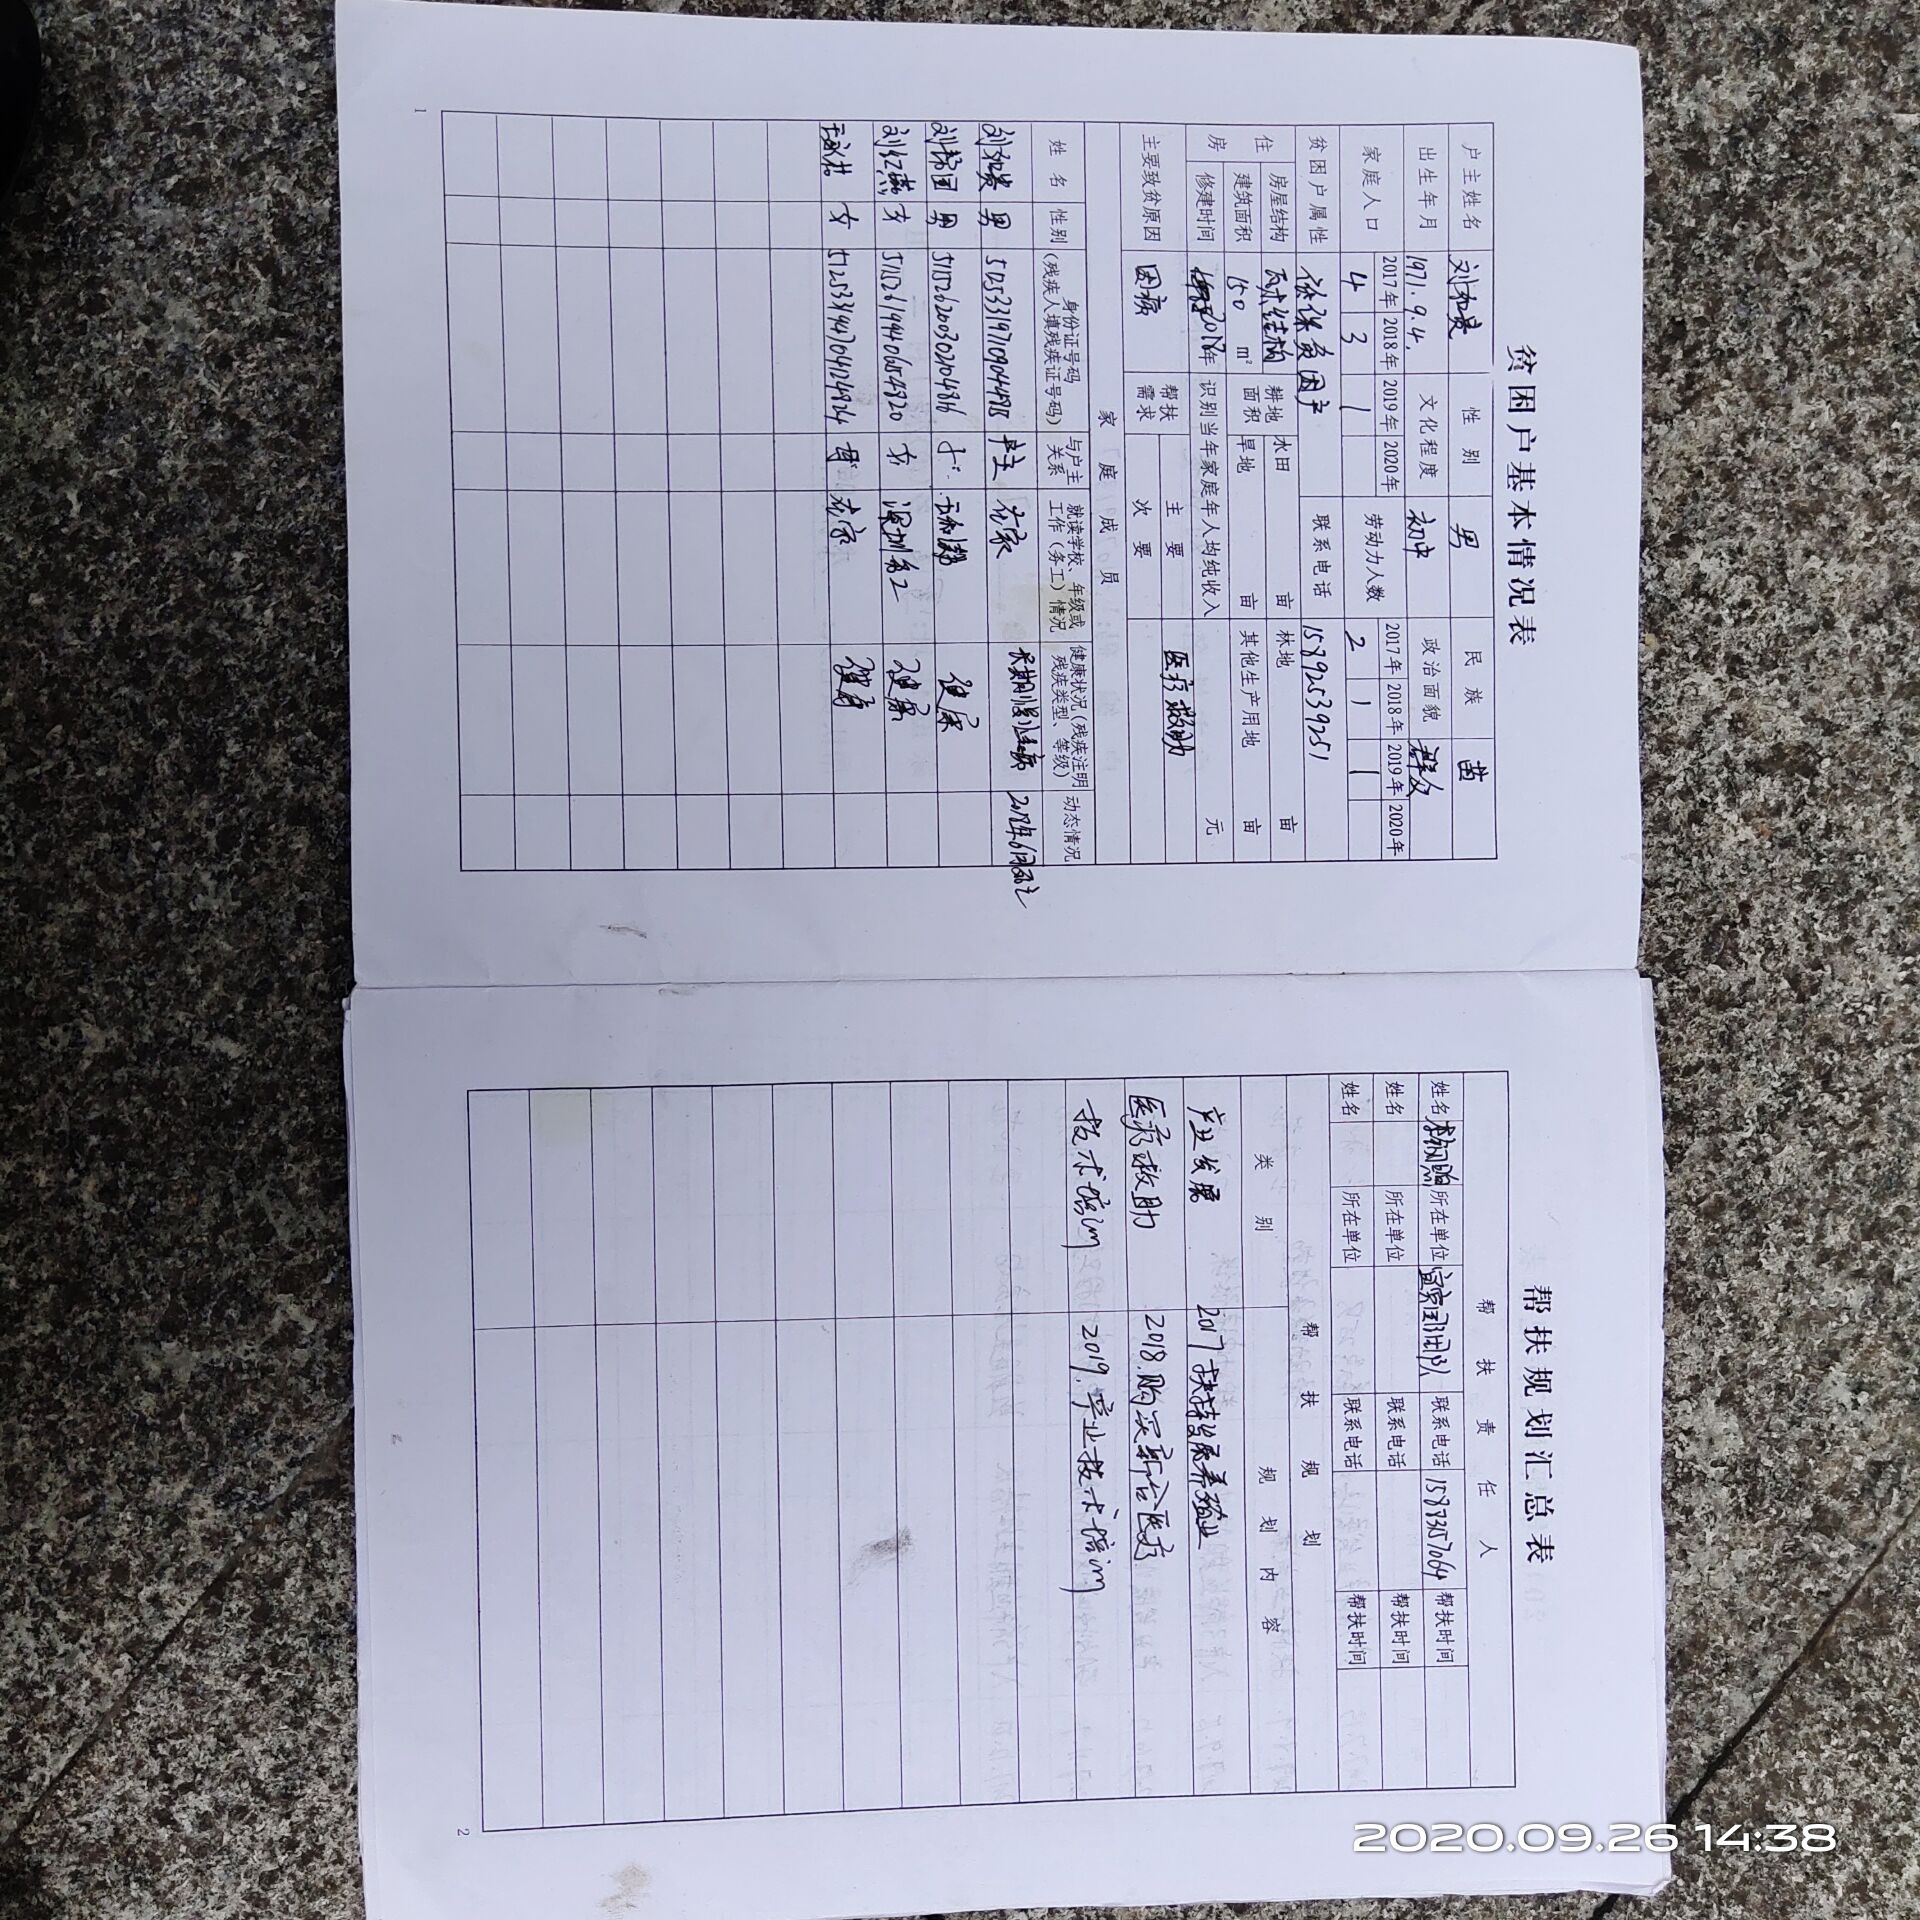 贫困户基本情况表
户主姓名 刘和贵 性别 男 民族 苗
出生年月 1971.9.4. 文化程度 初中 政治面貌 群众
家庭人口 2017年 2018年 2019年 2020年 劳动力人数 2017年 2018年 2019年 2020年
4 3 1 2 1 1
贫困户属性 低保贫困户 联系电话 15892539251
住房 房屋结构 耕地面积 水田 亩 林地 亩
建筑面积 150 m² 旱地 亩 其他生产用地 亩
修建时间 2018年 识别当年家庭年人均纯收入 元
主要致贫原因 因病 帮扶需求 主要 医疗救助
次要
家庭成员
姓名 性别 身份证号码(残疾人填残疾证号码) 与户主关系 就读学校、年级或工作(务工)情况 健康状况(残疾注明残疾类型、等级) 动态情况
刘和贵 男 户主 在家 长期慢性病
男 子 健康
女 女 深圳务工 健康
女 512533194704124924 母 在家 健康
1
帮扶规划汇总表
帮扶责任人
姓名 所在单位 联系电话 15883157064 帮扶时间
姓名 所在单位 联系电话 帮扶时间
姓名 所在单位 联系电话 帮扶时间
帮扶规划
类别 规划内容
产业发展 2017 扶持发展养殖业
医疗救助 2018.购买新合医疗
技术培训 2019.产业技术培训
2
2020.09.26 14:38